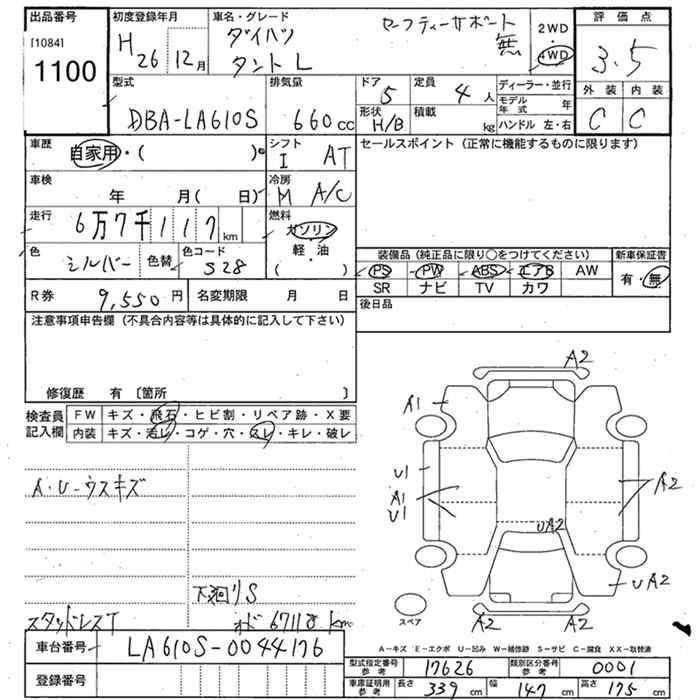 出品番号 [1084] 1100
初度登録年月 H26 12月
車名・グレード ダイハツ タント L
セーフティーサポート 無
2WD 4WD
評価点 3.5
外装 内装
C C
型式 DBA-LA610S
排気量 660cc
ドア 5
定員 4人
形状 H/B
積載 kg
ディーラー・並行
モデル年式 年
ハンドル 左・右
車歴 自家用・( )
シフト I AT
セールスポイント (正常に機能するものに限ります)
車検 年 月( 日)
冷房 M A/C
走行 6万7千117km
燃料 ガソリン 軽・油 ( )
色 シルバー 色替 色コード S28
装備品 (純正品に限り○をつけてください) 新車保証書
PS PW ABS エアB AW 有・無
SR ナビ TV カワ
R券 9,550円 名変期限 月 日
後日品
注意事項申告欄 (不具合内容等は具体的に記入して下さい)
修復歴 有 〔箇所 〕
検査員記入欄
FW キズ・飛石・ヒビ割・リペア跡・X要
内装 キズ・汚レ・コゲ・穴・スレ・キレ・破レ
A2
A1
U1
A1
U1
A2
UA2
UA2
A2 A2
A・U-ウスキズ
下廻りS
スタッドレスT オド 67118km
スペア
A-キズ E-エクボ U-凹み W-補修跡 S-サビ C-腐食 XX-取替済
車台番号 LA610S-0044176
登録番号
型式指定番号 参考 17626 類別区分番号 参考 0001
車庫証明用 参考 長さ 339cm 幅 147cm 高さ 175cm